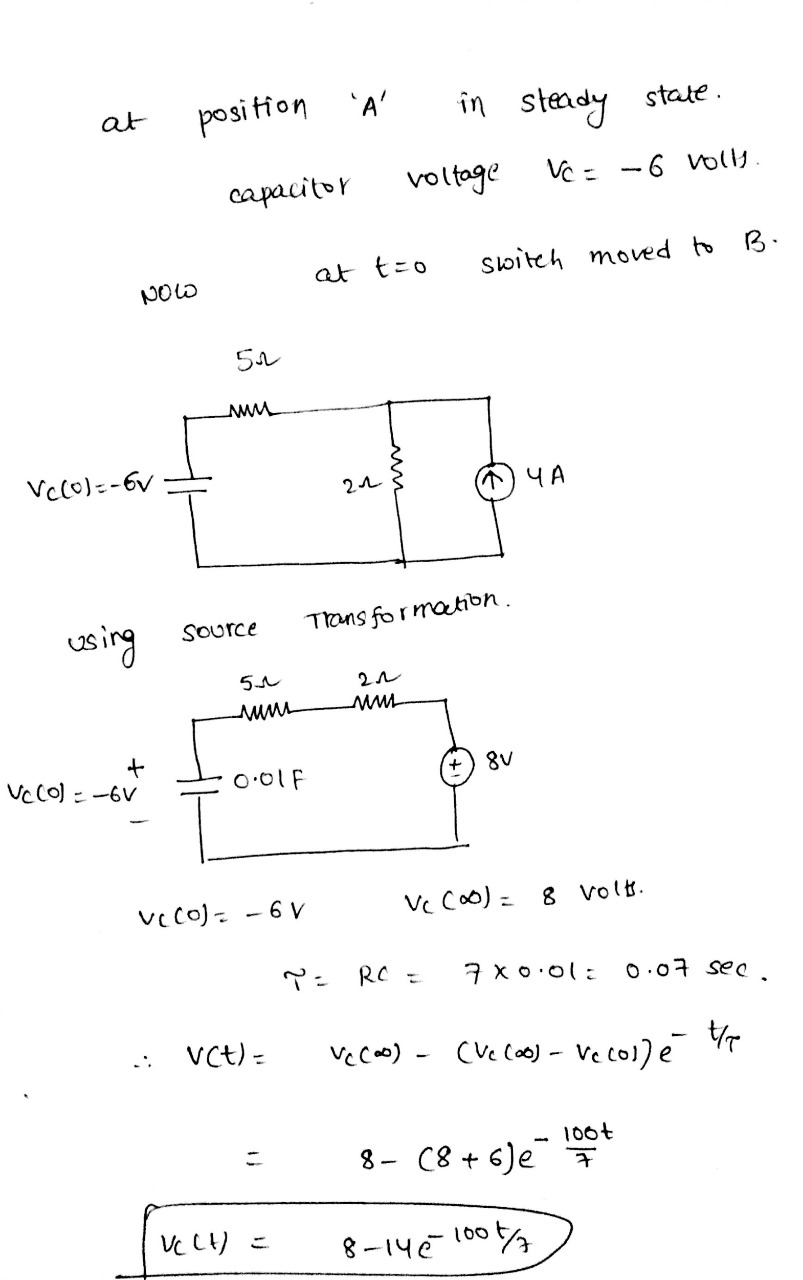 at position 'A' in steady state.
capacitor voltage Vc = -6 volts.
NOW at t=0 switch moved to B.
5Ω
Vc(0)=-6V
2Ω
4A
using source Transformation.
5Ω 2Ω
+
Vc(0) = -6V
-
0.01F
+
-
8V
Vc(0) = -6V Vc(∞) = 8 volts.
τ = RC = 7 x 0.01 = 0.07 sec.
∴ V(t) = Vc(∞) - (Vc(∞) - Vc(0)) e^-t/τ
= 8 - (8 + 6) e^-100t/7
Vc(t) = 8-14e^-100t/7